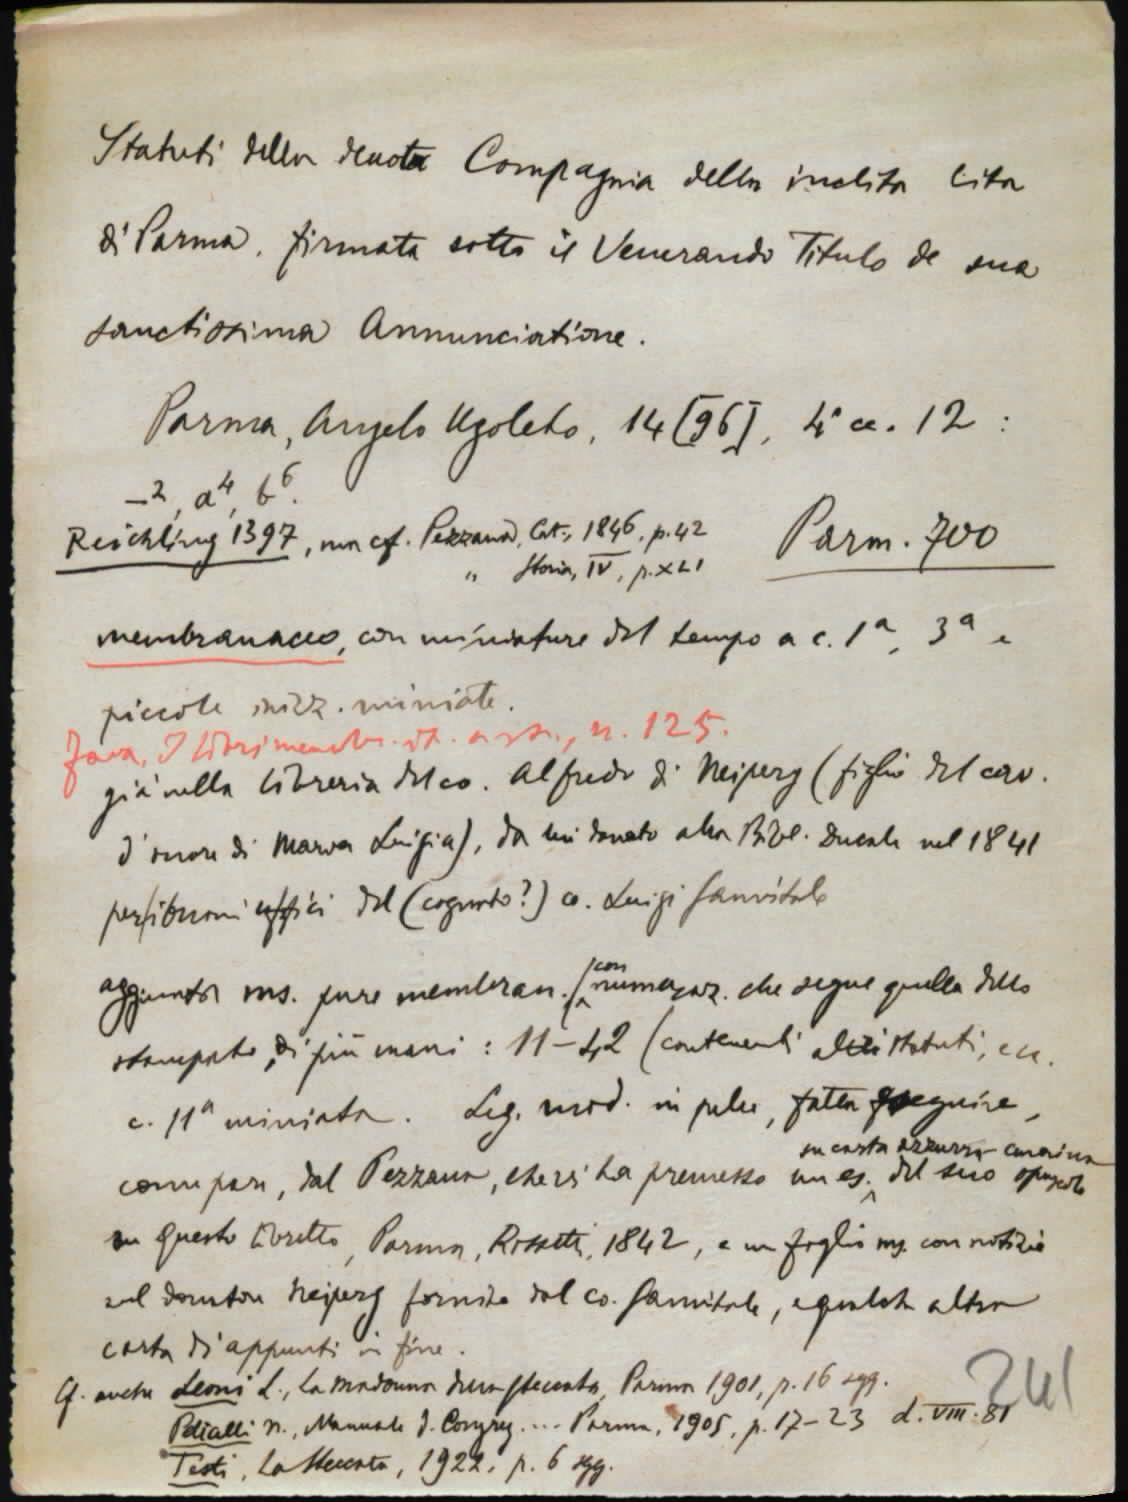 Statuti della deuota Compagnia della inclita Cita
di Parma, firmata sotto il Venerando Titulo de sua
sanctissima Annunciatione.
Parma, Angelo Ugoleto, 14[96], 4° cc. 12 :
–², a⁴, b⁶.
Reichling 1397, ma cf. Pezzana, Cat., 1846, p. 42
" Storia, IV, p. XLI
Parm. 700
membranaceo, con miniature del tempo a c. 1ª, 3ª e
piccole inizz. miniate.
Fava, I libri membr. n. 125.
già nella libreria del co. Alfredo di Neiperg (figlio del cav.
d'onore di Maria Luigia), da lui donato alla Bibl. Ducale nel 1841
per i buoni uffici del (cognato?) co. Luigi Sanvitale
aggiunta ms. pure membran. (con numeraz. che segue quella dello
stampato, di più mani : 11–42 (contenenti altri statuti, ecc.
c. 11ª miniata. Leg. mod. in pelle, fatta eseguire,
come pare, dal Pezzana, che vi ha premesso un es. su carta azzurra del suo opuscolo
su questo libretto, Parma, Rossetti, 1842, e un foglio ms. con notizie
sul donatore Neiperg fornite dal co. Sanvitale, e qualche altra
carta di appunti in fine.
Cf. anche Leoni L., La Madonna della Steccata, Parma 1901, p. 16 sgg.
Pelicelli N., Manuale d. Congreg. ... Parma, 1905, p. 17–23 d. VIII. 81
Testi, La Steccata, 1922, p. 6 sgg.
241